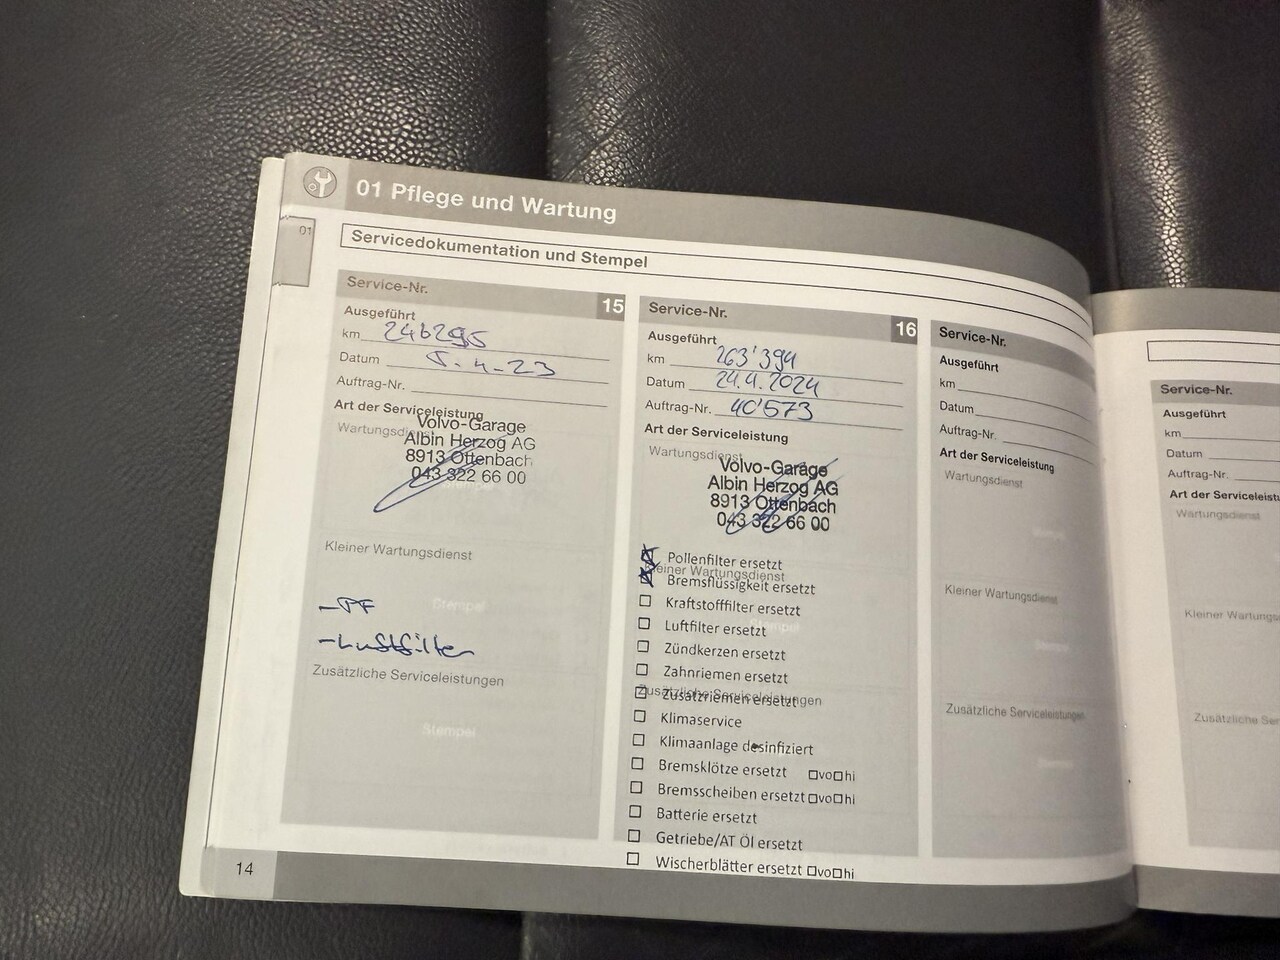 01 Pflege und Wartung
01
Servicedokumentation und Stempel
Service-Nr. 15
Ausgeführt
km 246295
Datum 5.4.23
Auftrag-Nr.
Art der Serviceleistung
Wartungsdienst
Volvo-Garage
Albin Herzog AG
8913 Ottenbach
043 322 66 00
Stempel
Kleiner Wartungsdienst
Stempel
-PF
-Luftfilter
Zusätzliche Serviceleistungen
Stempel
14
Service-Nr. 16
Ausgeführt
km 263'394
Datum 24.4.2024
Auftrag-Nr. 40'573
Art der Serviceleistung
Wartungsdienst
Volvo-Garage
Albin Herzog AG
8913 Ottenbach
043 322 66 00
Pollenfilter ersetzt
Kleiner Wartungsdienst
Bremsflüssigkeit ersetzt
Kraftstofffilter ersetzt
Luftfilter ersetzt
Stempel
Zündkerzen ersetzt
Zahnriemen ersetzt
Zusätzliche Serviceleistungen
Zusatzriemen ersetzt
Klimaservice
Klimaanlage desinfiziert
Bremsklötze ersetzt vo hi
Bremsscheiben ersetzt vo hi
Batterie ersetzt
Getriebe/AT Öl ersetzt
Wischerblätter ersetzt vo hi
Service-Nr.
Ausgeführt
km
Datum
Auftrag-Nr.
Art der Serviceleistung
Wartungsdienst
Stempel
Kleiner Wartungsdienst
Stempel
Zusätzliche Serviceleistungen
Stempel
Service-Nr.
Ausgeführt
km
Datum
Auftrag-Nr.
Art der Serviceleistu
Wartungsdienst
Kleiner Wartungs
Zusätzliche Se